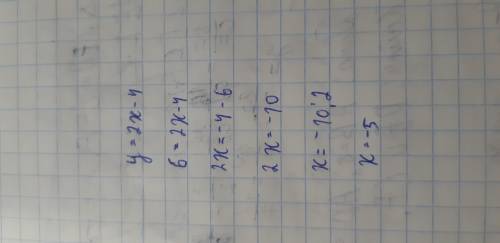 y = 2x - 4
6 = 2x - 4
2x = -4 - 6
2x = -10
x = -10 : 2
x = -5